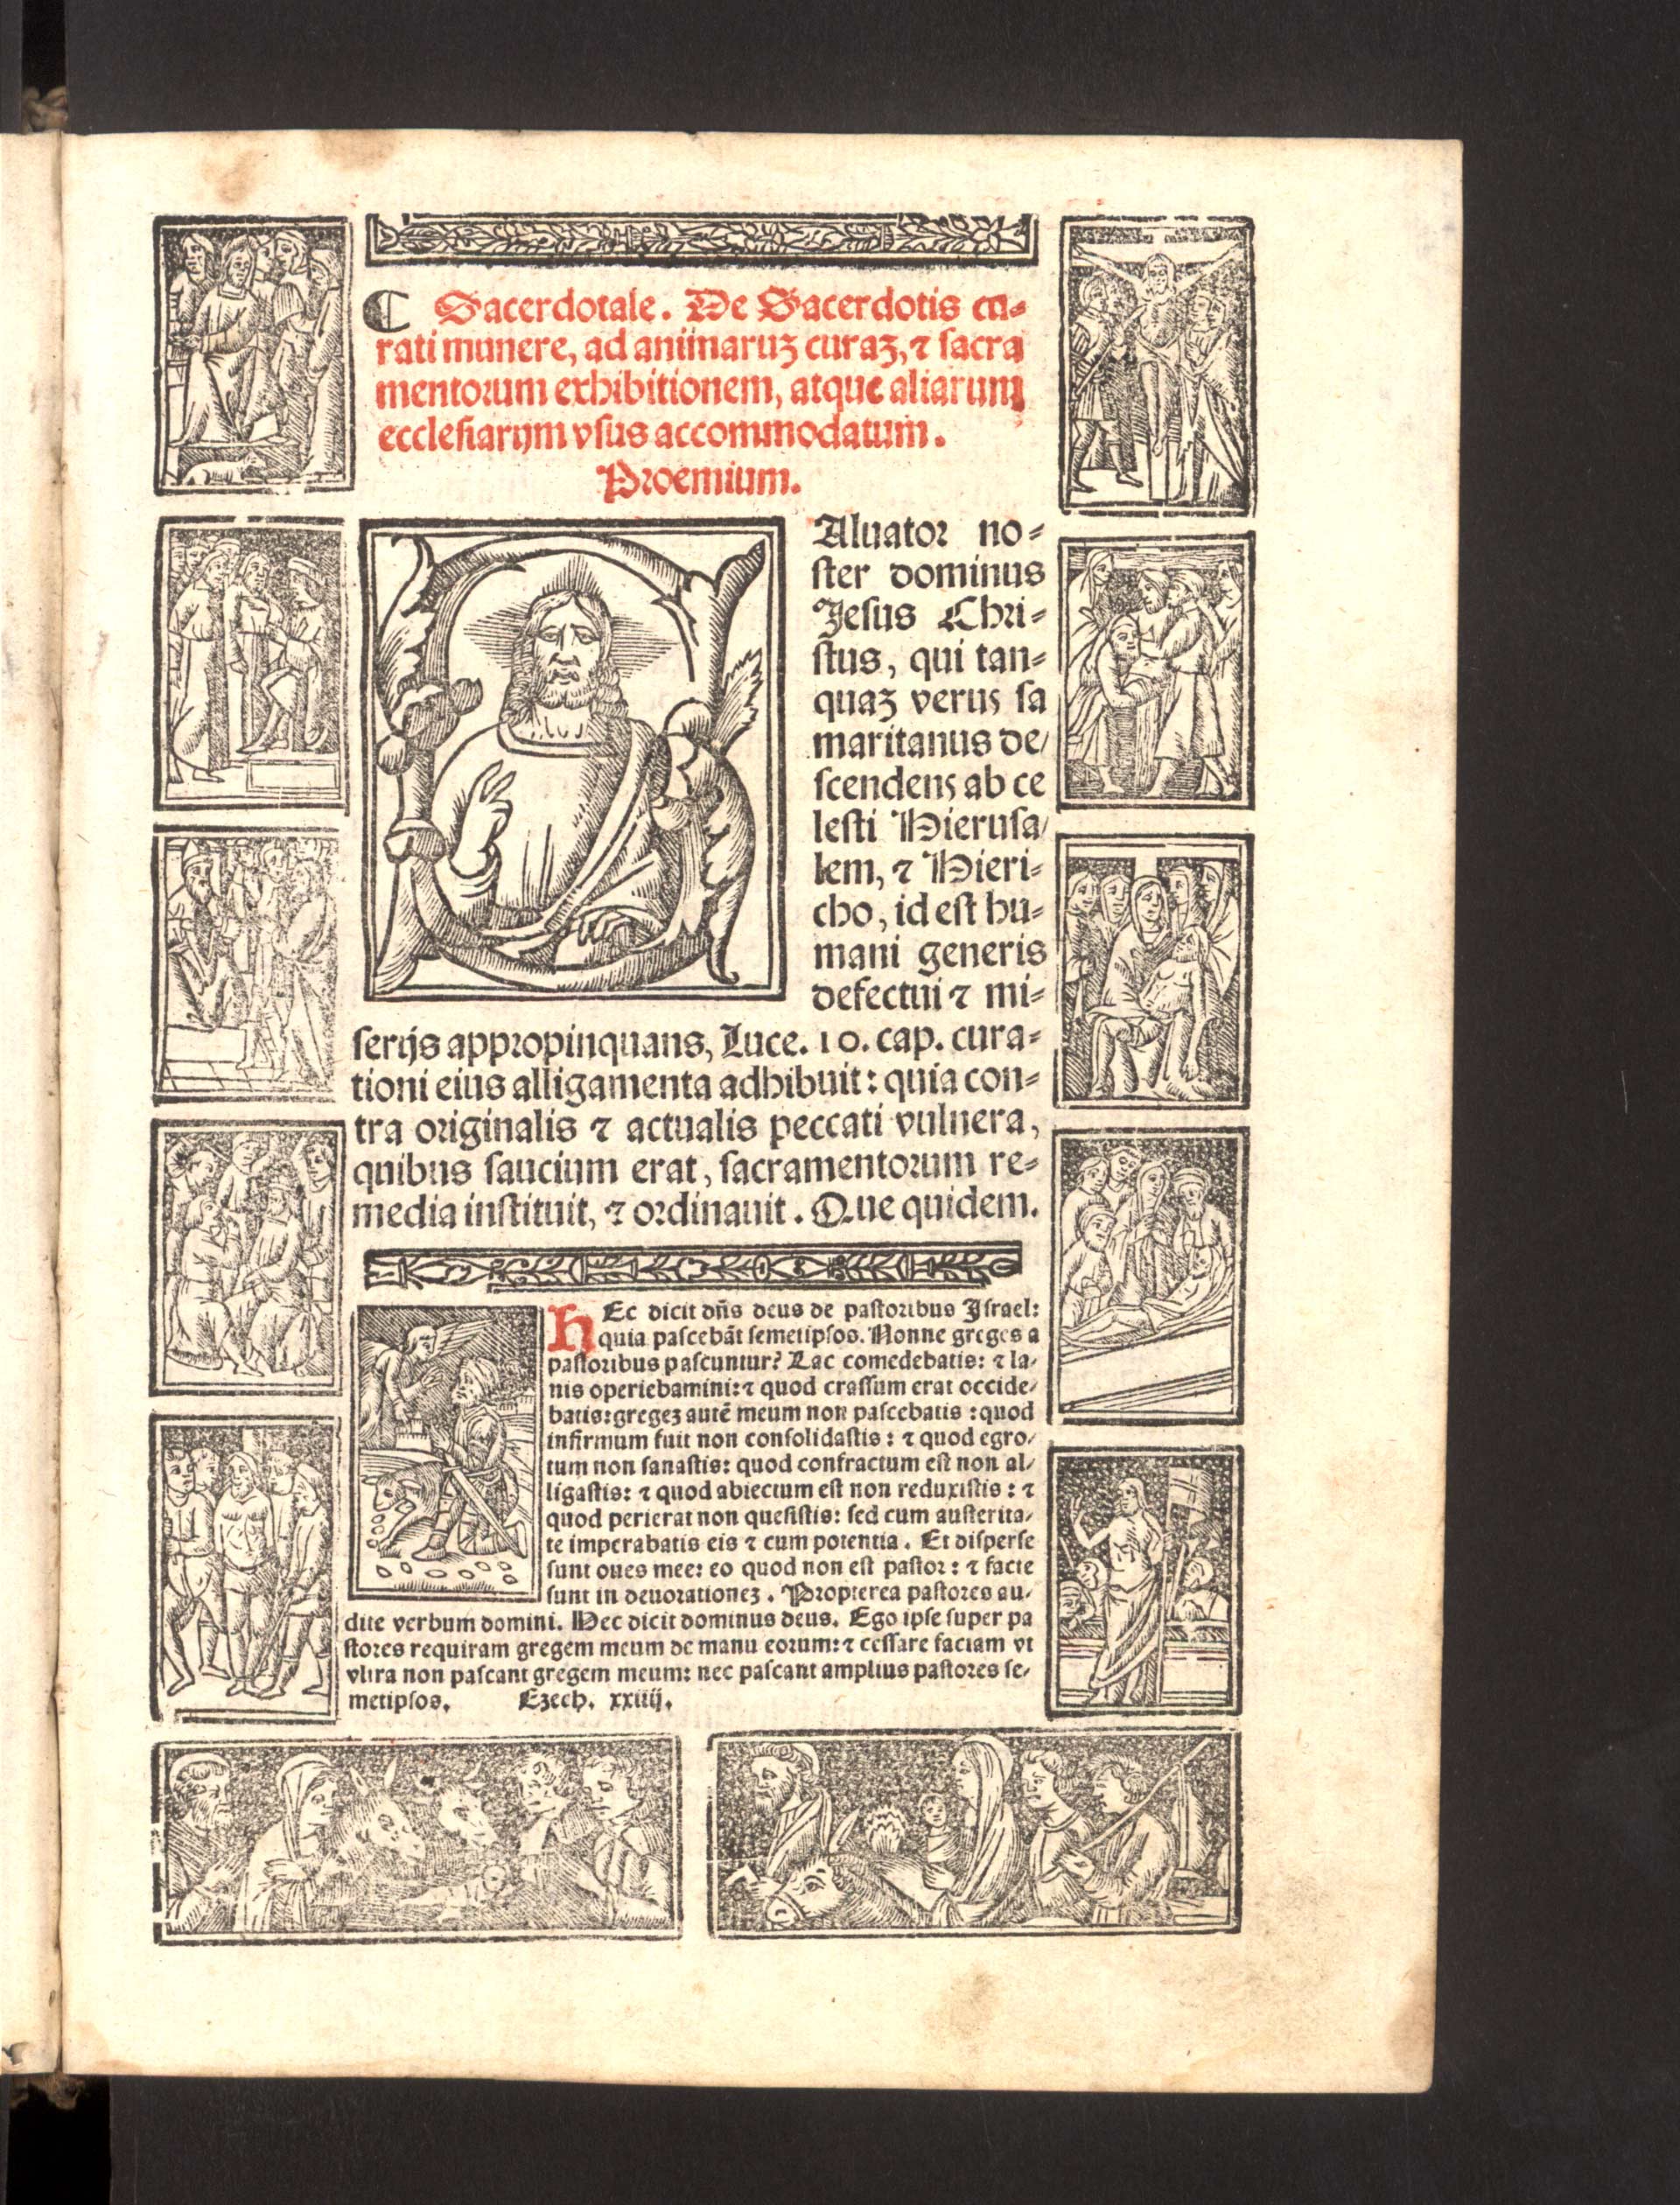 ¶ Sacerdotale. De Sacerdotis cu⸗
rati munere, ad aniınaruꝫ curaꝫ, ⁊ sacra
mentorum exhibitionem, atque aliarum
ecclesiarum vsus accommodatum.
Proemium.
SAluator no⸗
ster dominus
Jesus Chri⸗
stus, qui tan⸗
quaꝫ verus sa
maritanus de/
scendens ab ce
lesti Hierusa/
lem, ⁊ Hieri⸗
cho, id est hu⸗
mani generis
defectui ⁊ mi⸗
serijs appropinquans, Luce. 10. cap. cura⸗
tioni eius alligamenta adhibuit: quia con⸗
tra originalis ⁊ actualis peccati vulnera,
quibus saucium erat, sacramentorum re⸗
media instituit, ⁊ ordinauit. Que quidem.
hEc dicit dñs deus de pastoribus Israel:
quia pascebãt semetipsos. Nonne greges a
pastoribus pascuntur? Lac comedebatis: ⁊ la/
nis operiebamini: ⁊ quod crassum erat occide/
batis: gregeꝫ autẽ meum non pascebatis: quod
infirmum fuit non consolidastis: ⁊ quod egro/
tum non sanastis: quod confractum est non al/
ligastis: ⁊ quod abiectum est non reduxistis: ⁊
quod perierat non quesistis: sed cum austerita/
te imperabatis eis ⁊ cum potentia. Et disperse
sunt oues mee: eo quod non est pastor: ⁊ facte
sunt in deuorationeꝫ. Propterea pastores au/
dite verbum domini. Hec dicit dominus deus. Ego ipse super pa
stores requiram gregem meum de manu eorum: ⁊ cessare faciam vt
vltra non pascant gregem meum: nec pascant amplius pastores se/
metipsos. Ezech. xxiiij.